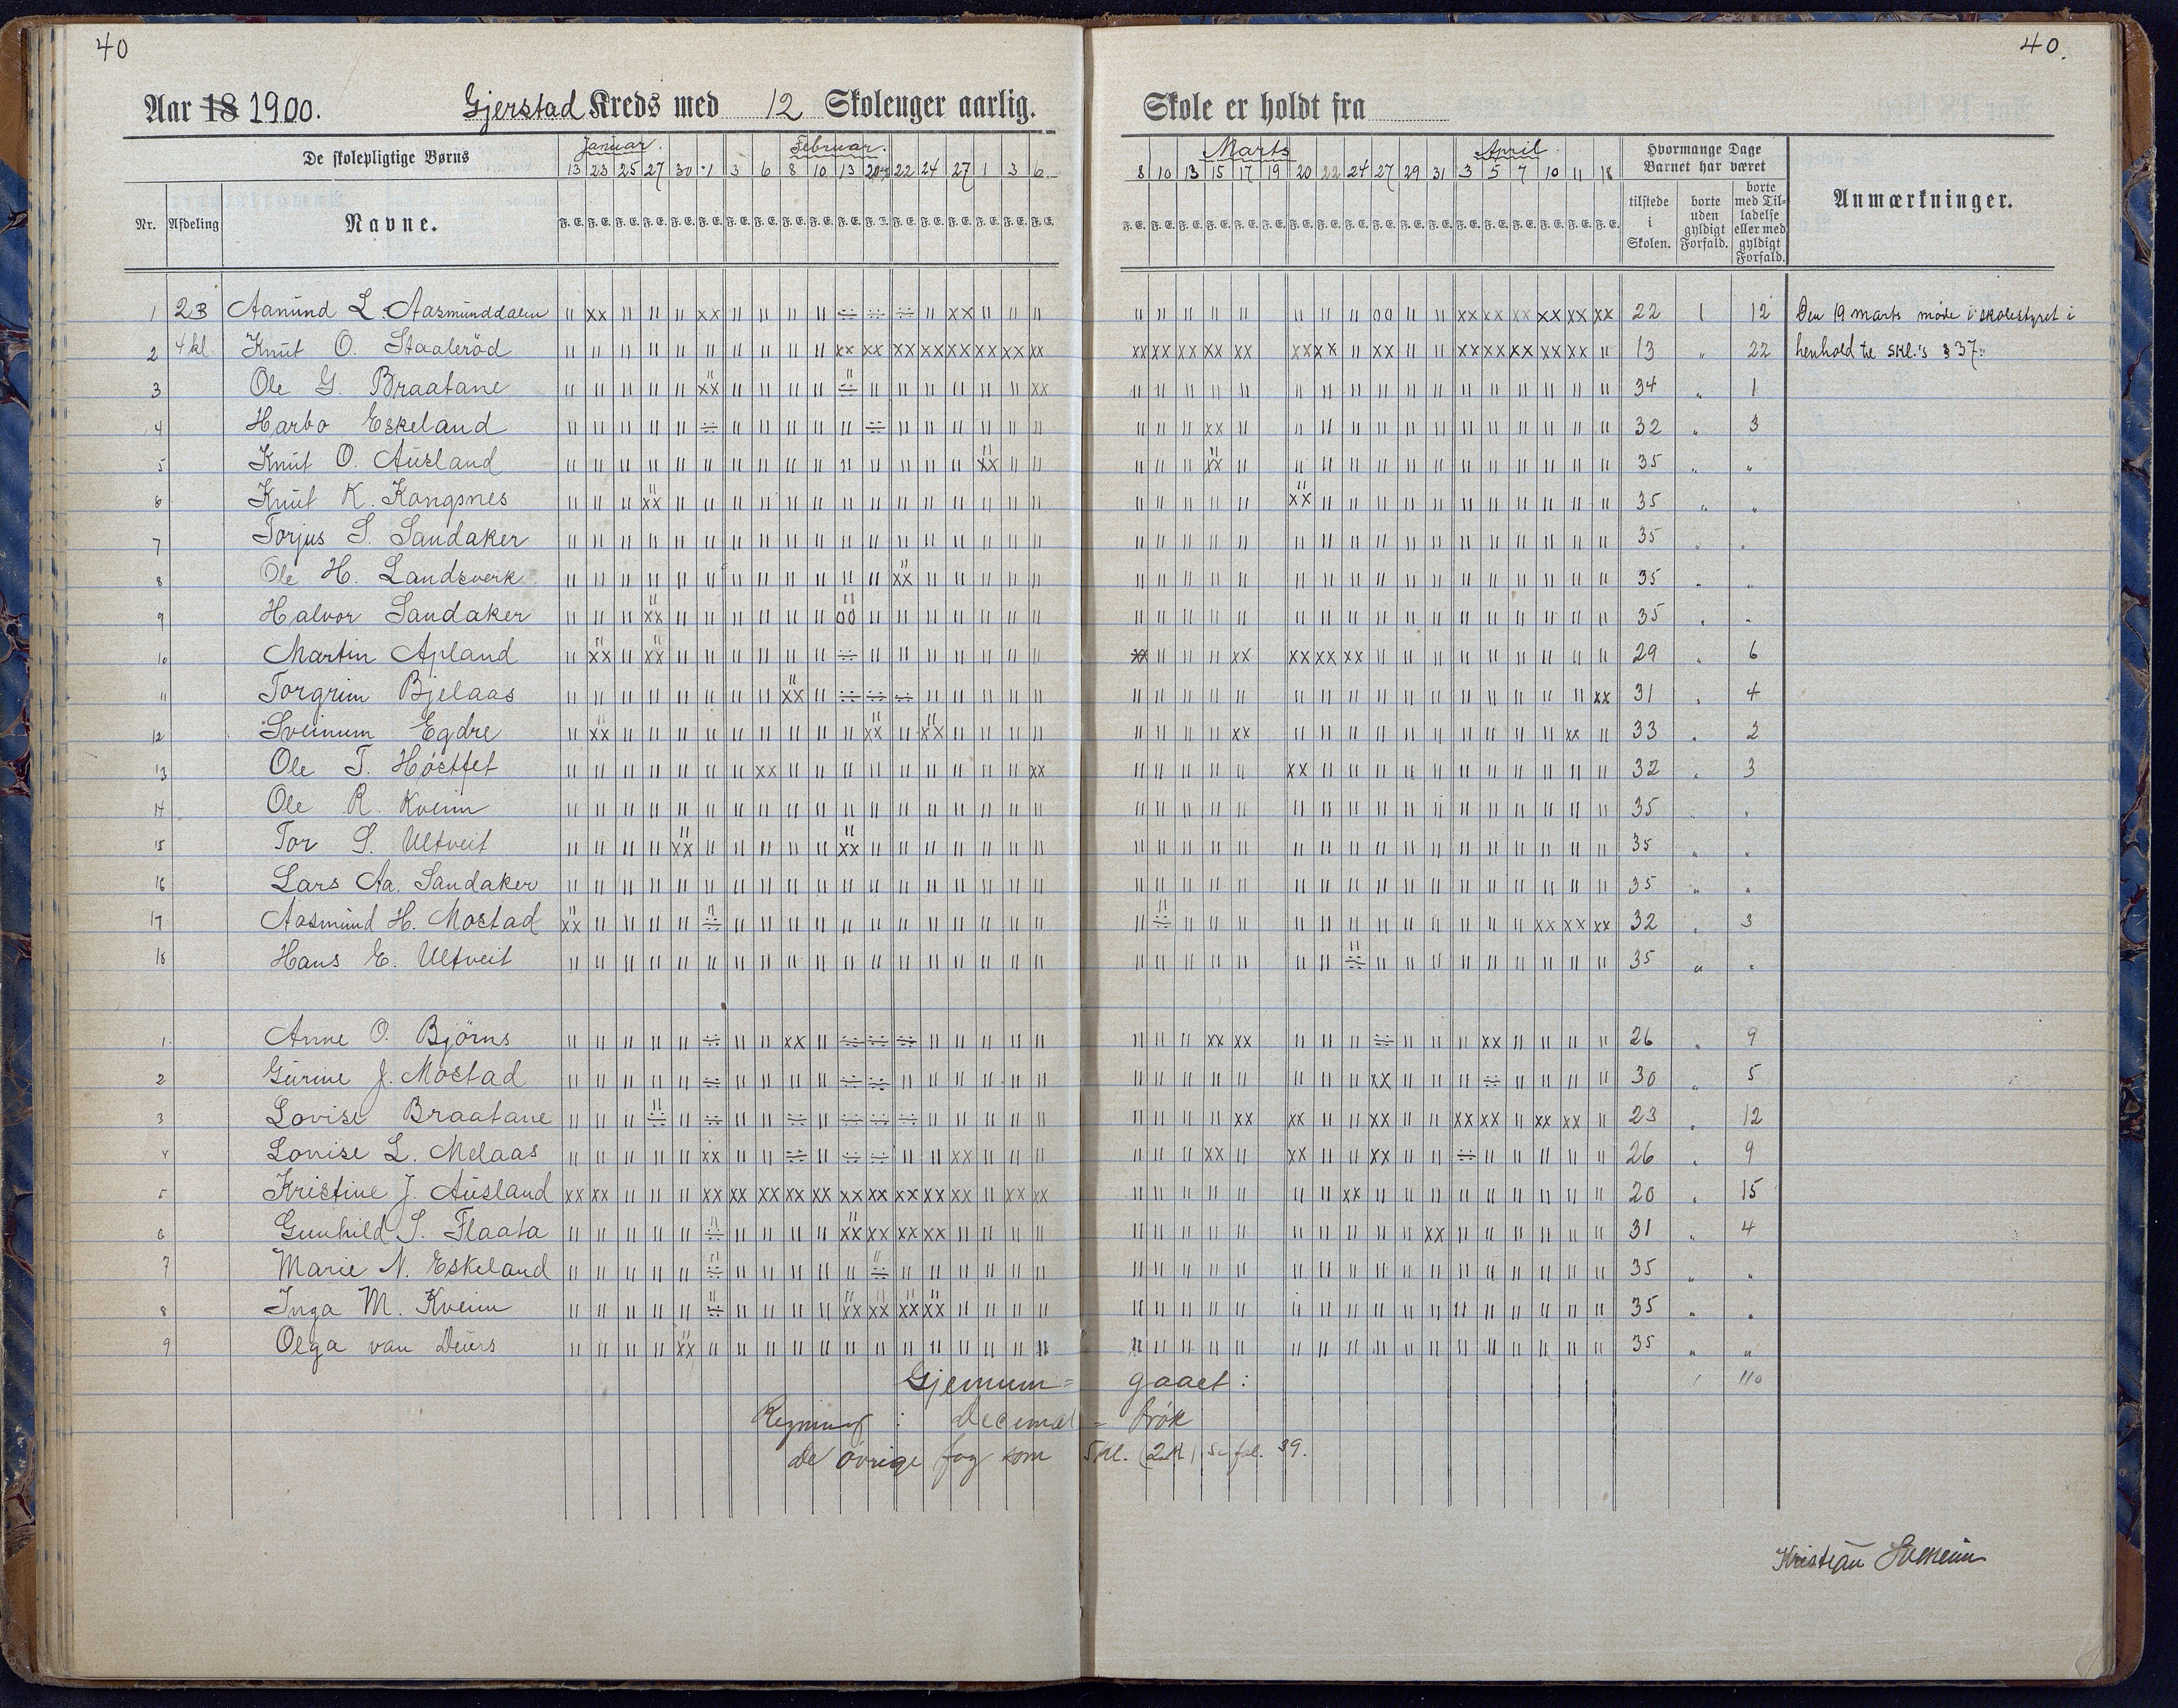 40
Aar 18 1900. Gjerstad Kreds med 12 Skolenger aarlig.
De skolepligtige Børns Januar. Februar.
13 23 25 27 30 1 3 6 8 10 13 20 22 24 27 1 3 6
Nr. Afdeling Navne. F. E. F. E. F. E. F. E. F. E. F. E. F. E. F. E. F. E. F. E. F. E. F. E. F. E. F. E. F. E. F. E. F. E. F. E.
1 2B Aanund L. Aasmunddalen
2 4 kl. Knut O. Staaleröd
3 Ole G. Braatane
4 Harbo Eskeland
5 Knut O. Ausland
6 Knut K. Kongsnes
7 Torjus S. Sandaker
8 Ole H. Landsverk
9 Halvor Sandaker
10 Martin Apland
11 Torgrim Bjelaas
12 Sveinum Egdre
13 Ole T. Høstfet
14 Ole R. Kveim
15 Tor S. Ultveit
16 Lars Aa. Sandaker
17 Aasmund H. Mostad
18 Hans E. Ultveit
1. Anne O. Bjørns
2 Gurine J. Mostad
3 Lovise Braatane
4 Lovise L. Melaas
5 Kristine J. Ausland
6 Gunhild S. Flaata
7 Marie N. Eskeland
8 Inga M. Kveim
9 Olga van Deurs
Gjennem=
Regning : Decimal=
de øvrige fag som
40.
Skole er holdt fra
Marts April Hvormange Dage Barnet har været Anmærkninger.
8 10 13 15 17 19 20 22 24 27 29 31 3 5 7 10 11 18
F. E. F. E. F. E. F. E. F. E. F. E. F. E. F. E. F. E. F. E. F. E. F. E. F. E. F. E. F. E. F. E. F. E. F. E.
tilstede i Skolen. borte uden gyldigt Forfald. borte med Tilladelse eller med gyldigt Forfald.
22 1 12 Den 19 marts møde i skolestyret i
13 " 22 henhold til skl.'s § 37.
34 " 1
32 " 3
35 " "
35 " "
35 " "
35 " "
35 " "
29 " 6
31 " 4
33 " 2
32 " 3
35 " "
35 " "
35 " "
32 " 3
35 " "
26 " 9
30 " 5
23 " 12
26 " 9
20 " 15
31 " 4
35 " "
35 " "
35 " "
gaaet : 1 110
brøk
5 kl. (2A) Se fol. 39.
Kristian